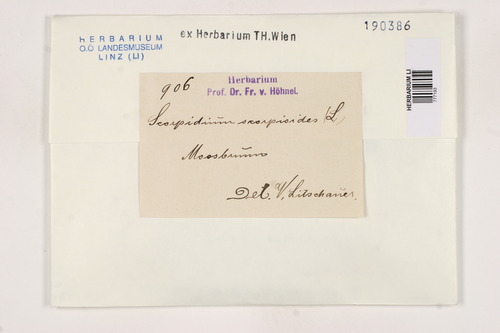 HERBARIUM
O.Ö LANDESMUSEUM
LINZ (LI)
ex Herbarium TH.Wien
190386
HERBARIUM LI
777793
906
Herbarium
Prof. Dr. Fr. v. Höhnel.
Scorpidium scorpioides (L)
Moosbrunn
Det. V. Litschauer.